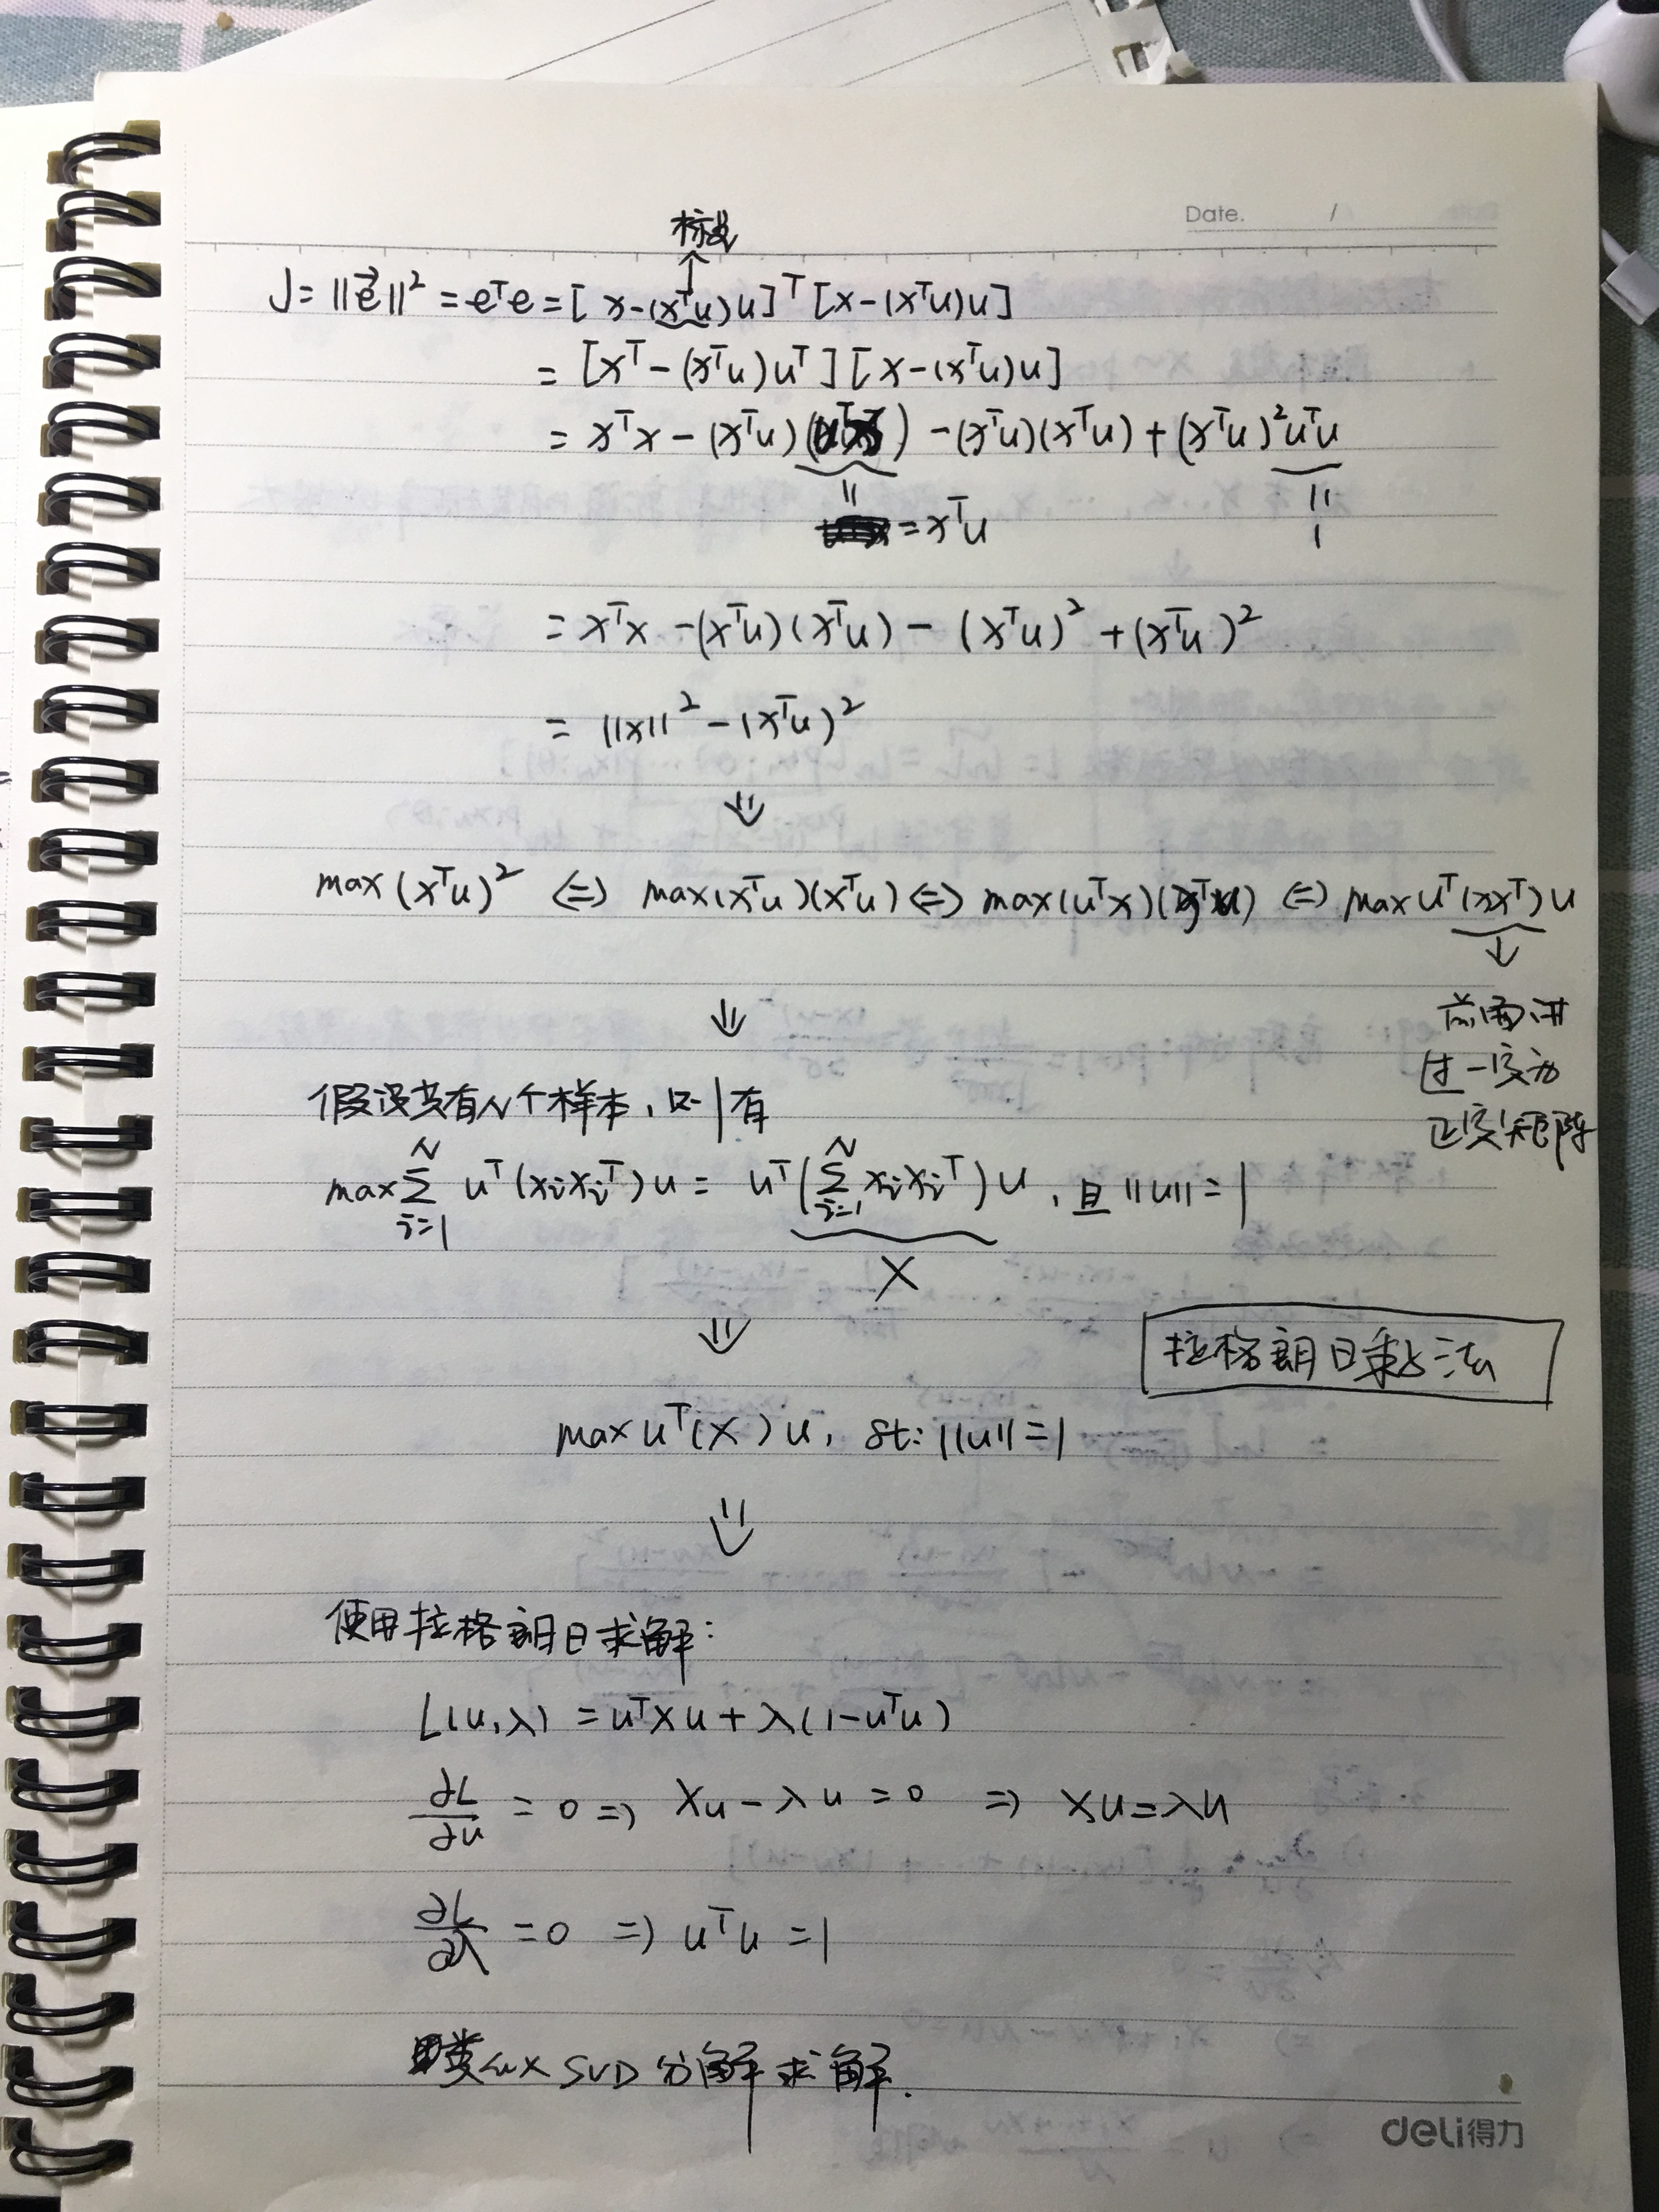 Date. /
标量
J = ||e⃗||² = eᵀe = [x-(xᵀu)u]ᵀ[x-(xᵀu)u]
= [xᵀ-(xᵀu)uᵀ][x-(xᵀu)u]
= xᵀx - (xᵀu)(uᵀx) - (xᵀu)(xᵀu) + (xᵀu)²uᵀu
= xᵀu
1
= xᵀx - (xᵀu)(xᵀu) - (xᵀu)² + (xᵀu)²
= ||x||² - (xᵀu)²
⇓
max(xᵀu)² ⇔ max(xᵀu)(xᵀu) ⇔ max(uᵀx)(xᵀu) ⇔ max uᵀ(xxᵀ)u
↓
前面讲
过一定为
正定矩阵
⇓
假设共有N个样本,则有
max∑ᵢ₌₁ᴺ uᵀ(xᵢxᵢᵀ)u = uᵀ(∑ᵢ₌₁ᴺ xᵢxᵢᵀ)u, 且||u||=1
X
⇓
拉格朗日乘子法
max uᵀ(X)u, st: ||u||=1
⇓
使用拉格朗日求解:
L(u,λ) = uᵀXu + λ(1-uᵀu)
∂L/∂u = 0 ⇒ Xu - λu = 0 ⇒ Xu = λu
∂L/∂λ = 0 ⇒ uᵀu = 1
类似 SVD 分解求解.
deli得力